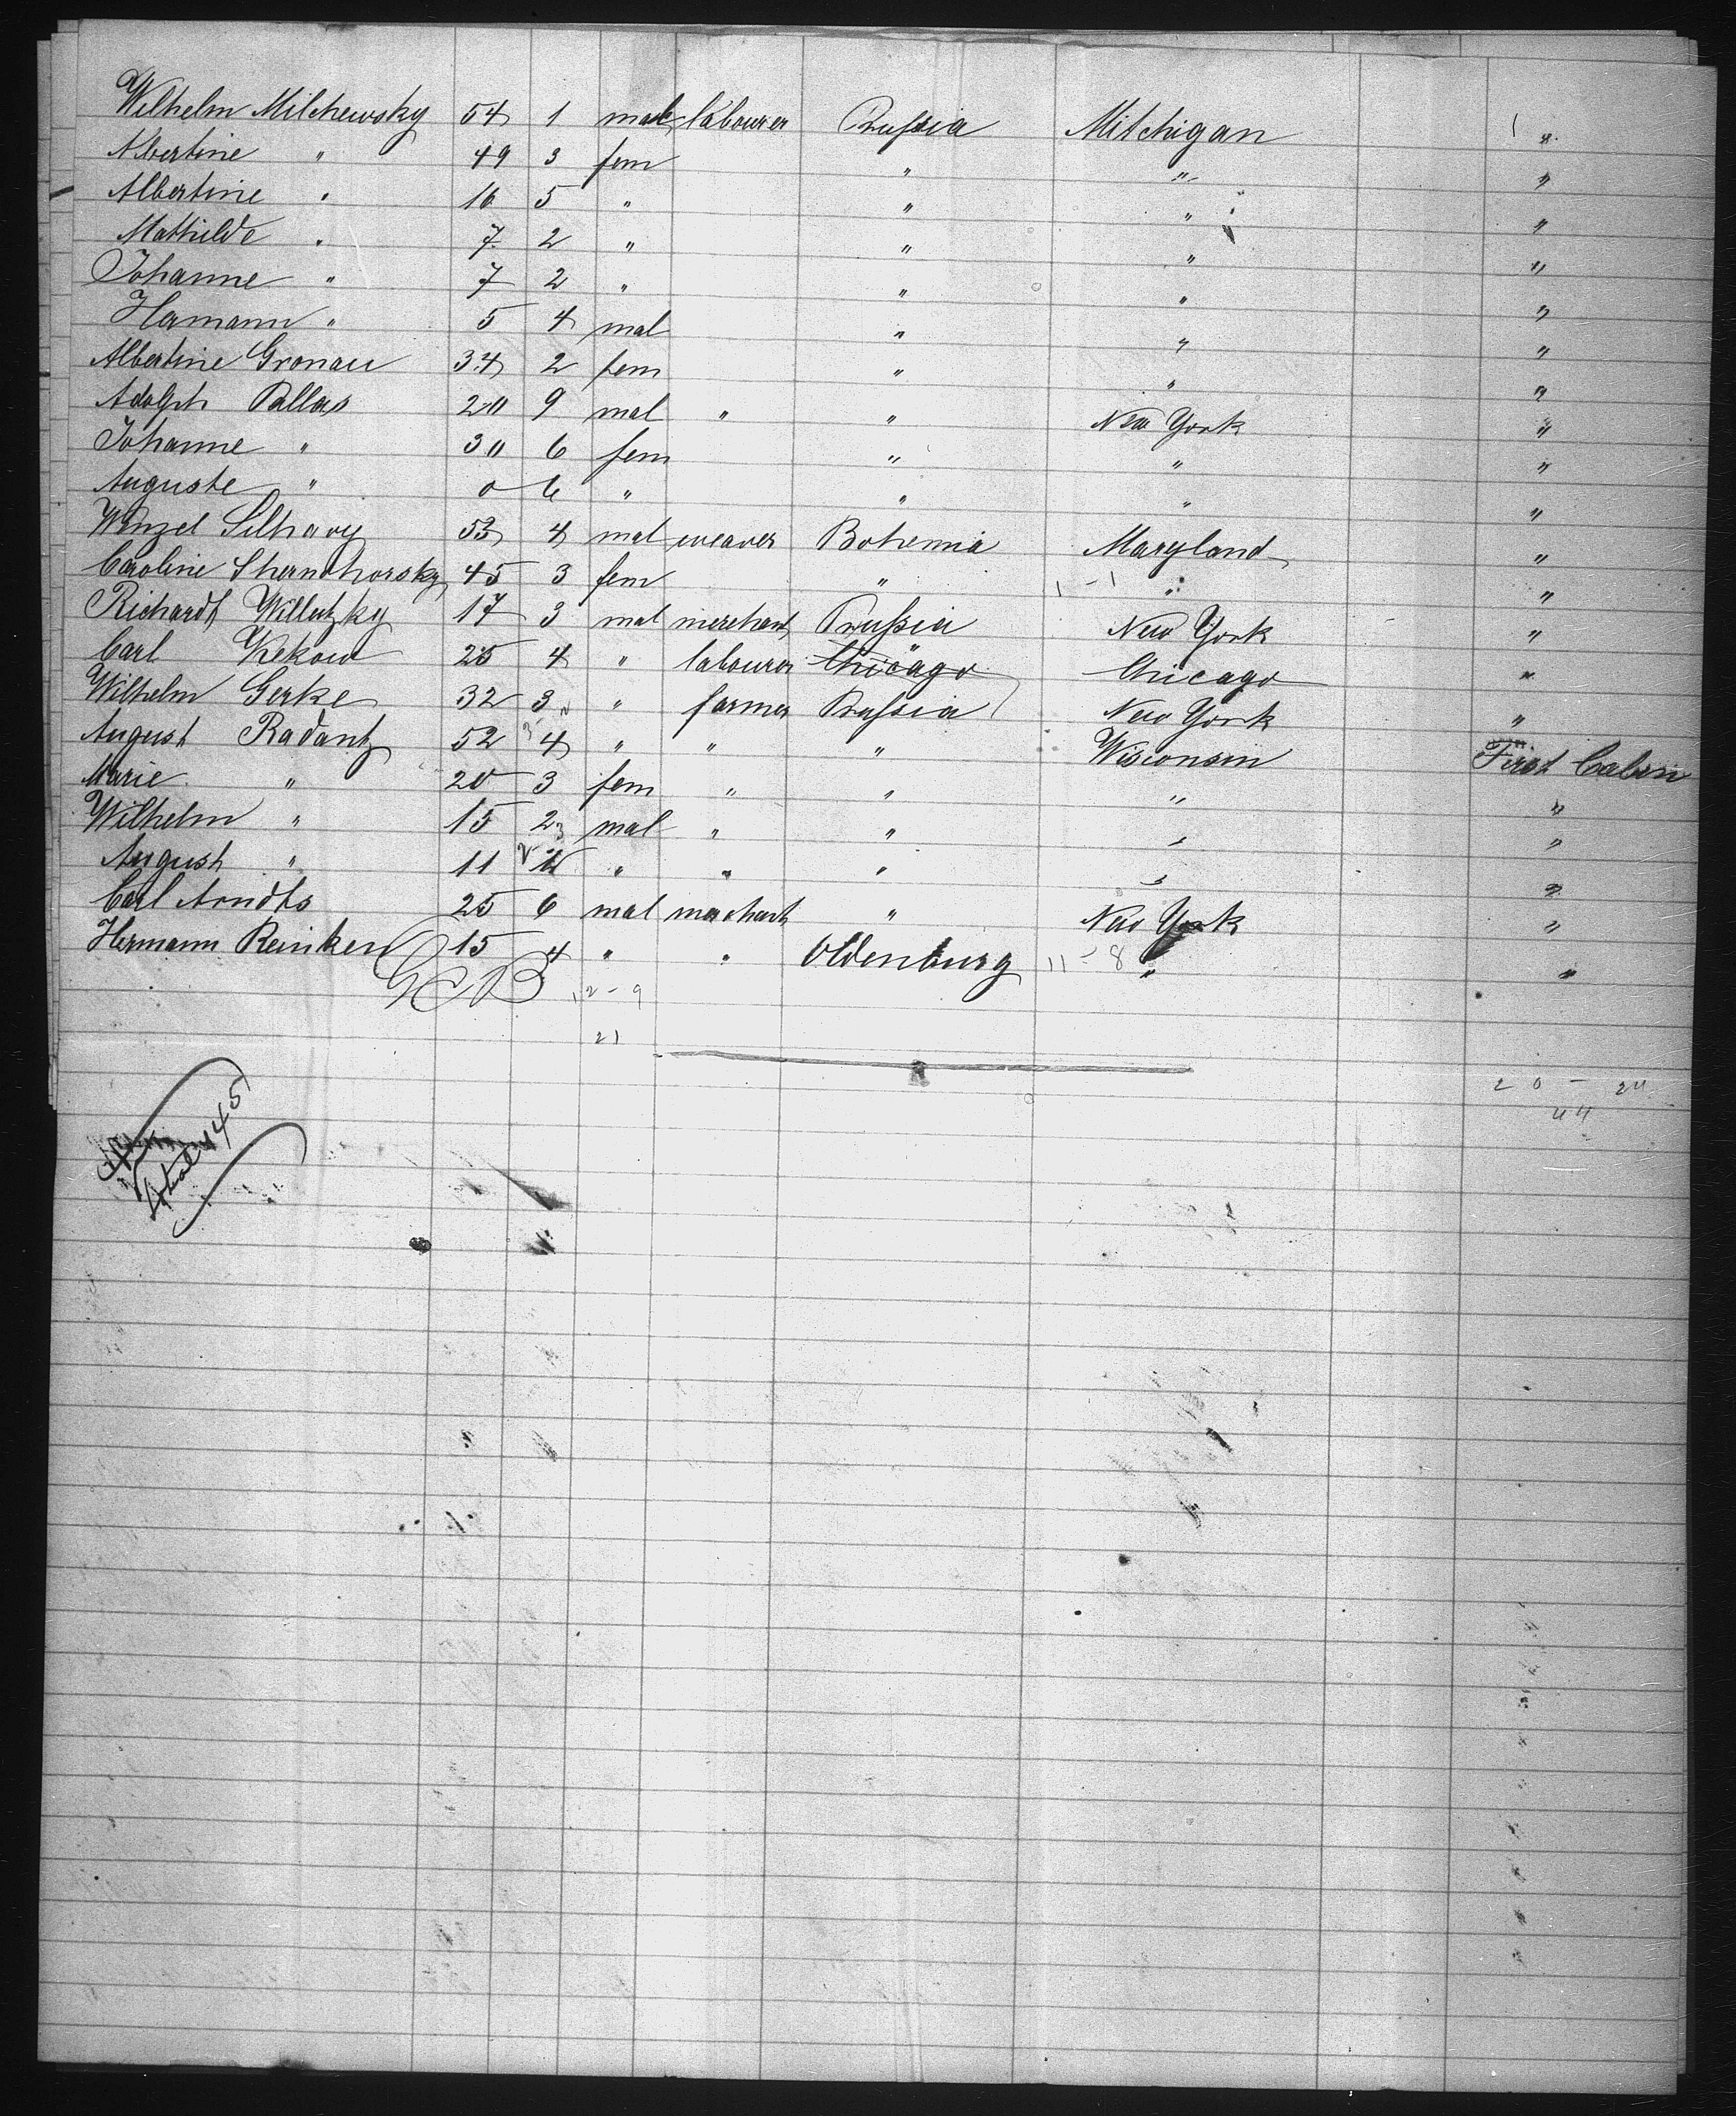 Wilhelm Milchewsky 54 1 male labourer Prussia Mitchigan "
Albertine " 49 3 fem " " "
Albertine " 16 5 " " " "
Mathilde " 7 2 " " " "
Johanne " 7 2 " " " "
Hermann " 5 4 mal " " "
Albertine Gronau 34 2 fem " " "
Adolph Pallas 20 9 mal " " New York "
Johanne " 30 6 fem " " "
Auguste " 0 6 " " " "
Wenzel Silhavy 53 4 mal weaver Bohemia Maryland "
Caroline 45 3 fem " " "
1 - 1
Richardt Willutzky 17 3 mal merchant Prussia New York "
Carl Kekow 25 4 " labourer Chicago Chicago "
Wilhelm Gerke 32 3 " farmer Prussia New York "
August Radantz 52 4 " " " Wisconsin First Cabin
Marie " 20 3 fem " " " "
Wilhelm " 15 2 mal " " " "
August " 11 " " " " "
Carl Arndts 25 6 mal merchant " New York "
Hermann Reinken 15 4 " " Oldenburg " "
11 - 8
12 - 9
21
20 - 24
44
145